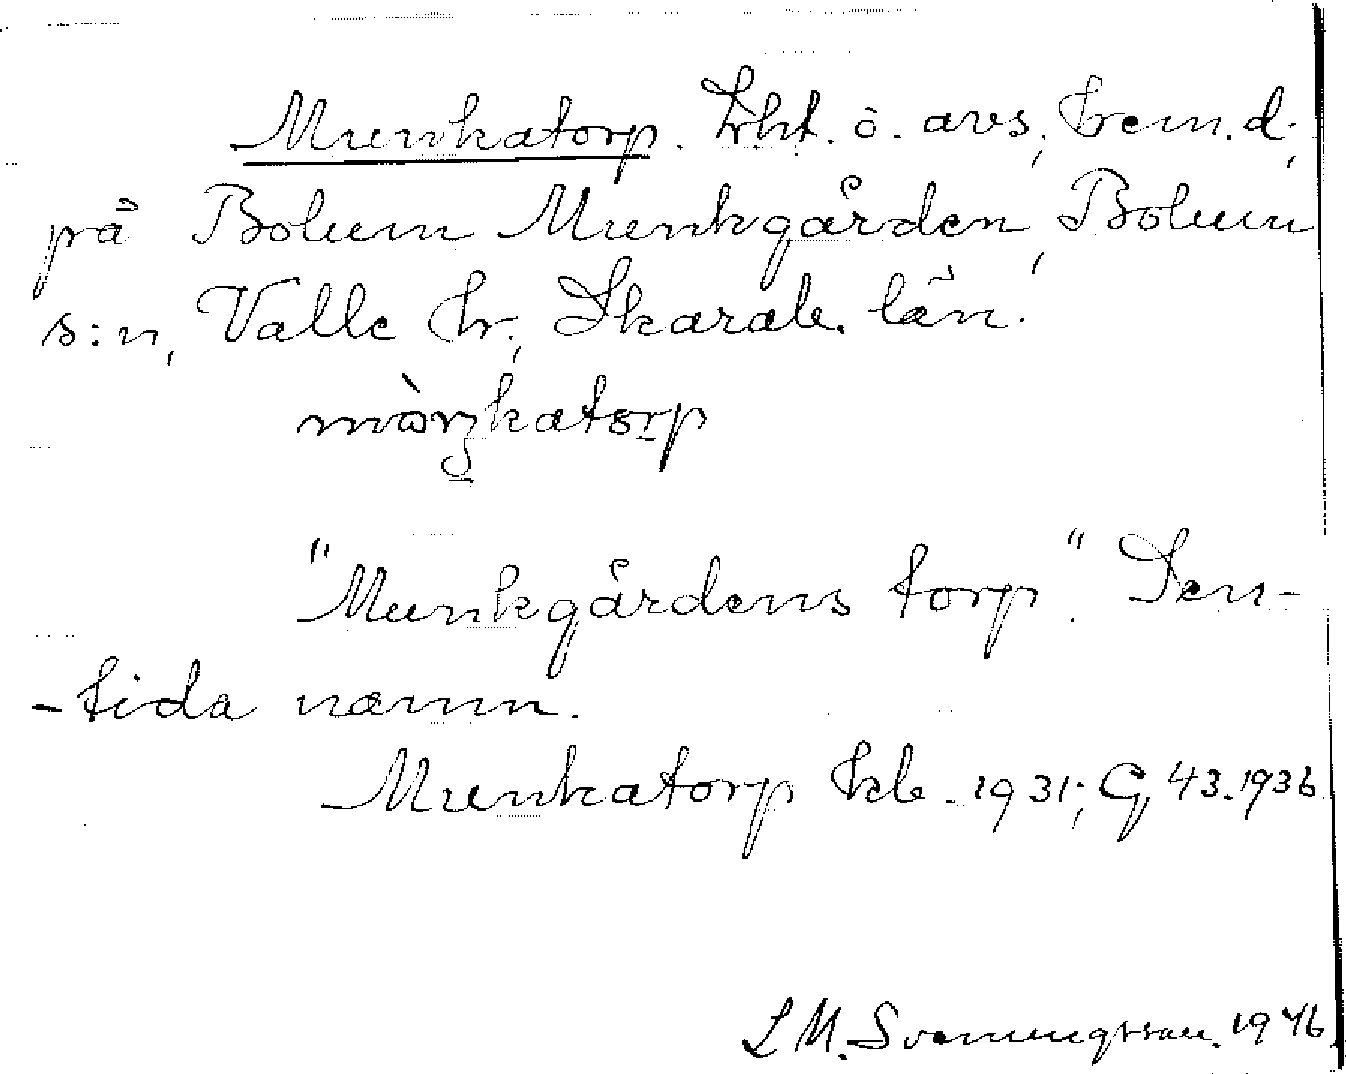 Munkatorp. Lht. o. avs, hem.d.
på Bolum Munkgården, Bolum
s:n, Valle hr, Skarab. län.
mòŋkatorp
"Munkgårdens torp". Sen-
-tida namn.
Munkatorp kb. 1931; G, 43. 1936
L M. Svenungsson. 1946